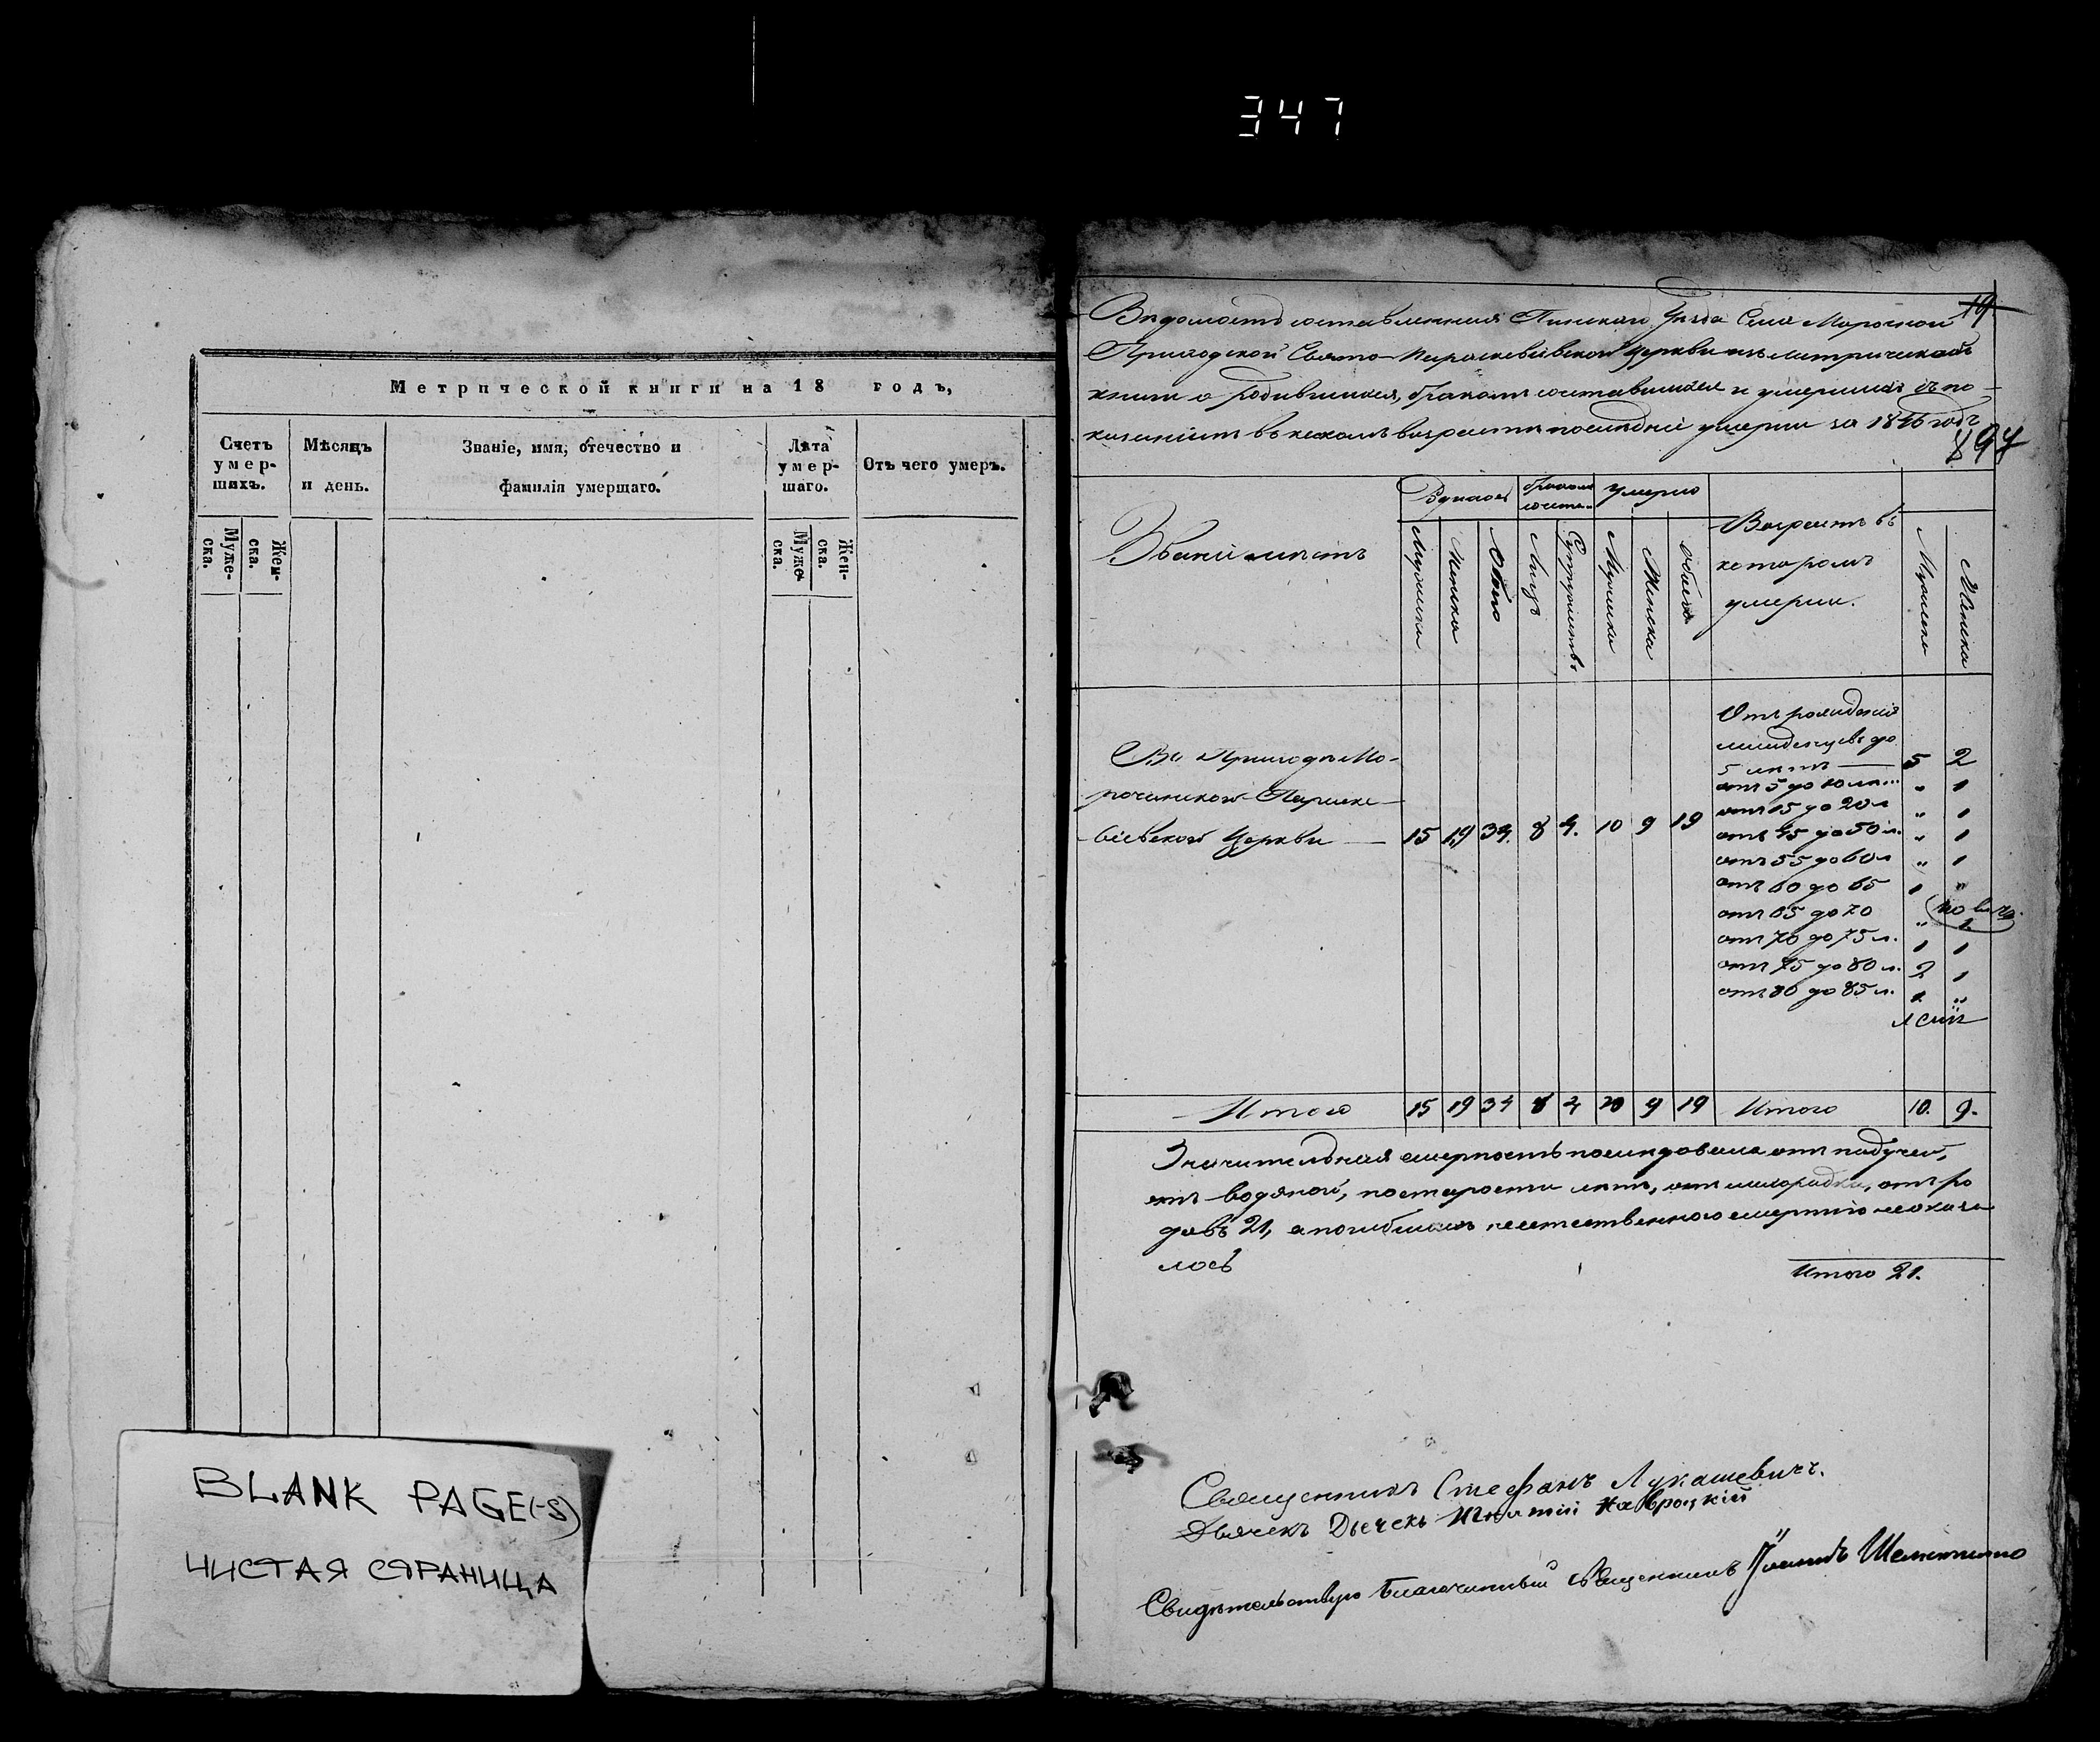 347
Метрической книги на 18 годъ,
Счетъ умер-шихъ.
Мѣсяцъ и день.
Званіе, имя, отечество и фамилія умершаго.
Лѣта умер-шаго.
Отъ чего умеръ.
Муже-ска.
Жен-ска.
Муже-ска.
Жен-ска.
BLANK PAGE(-S)
ЧИСТАЯ СТРАНИЦА
19
Вѣдомость составленная Пинскаго Уѣзда Села Морочной
Приходской Свято-Параскевіевской Церкви изъ метрической
книги о родившихся, бракомъ сочетавшихся и умершихъ съ по-
казаніемъ въ какомъ возрастѣ послѣдніе умерли за 1846 годъ
894
Званіе мѣстъ
Родилось
бракомъ сочета-
Умерло
Возрастъ въ
которомъ
умерли.
Мужеска
Женска
Обоего
Лицъ
Супружествъ
Мужеска
Женска
Обоего
Мужеска
Женска
Въ Приходѣ Мо-
рочинской Параске-
віевской Церкви
15 19 34. 8 4. 10 9 19
Отъ рожденія
младенцевъ до
5 лѣтъ 5 2
отъ 5 до 10 лѣт „ 1
отъ 15 до 20 л „ 1
отъ 45 до 50 л. „ 1
отъ 55 до 60 л „ 1
отъ 60 до 65 1 „
отъ 65 до 70 „ 1
отъ 70 до 75 л. 1 1
отъ 75 до 80 л. 2 1
отъ 80 до 85 л. 1 „
Итого 15 19 34 8 4 10 9 19 Итого 10. 9.
Значительная смертность послѣдовала отъ падучей,
отъ водяной, по старости лѣтъ, отъ лихорадки, отъ ро
довъ 21, а погибшихъ неестественною смертію не оказа
лось
Итого 21.
Священникъ Стефанъ Лукашевичъ.
Дьячекъ Дьечекъ Игнатій Навроцкій
Свидѣтельствую Благочинный Священникъ Іоаннъ